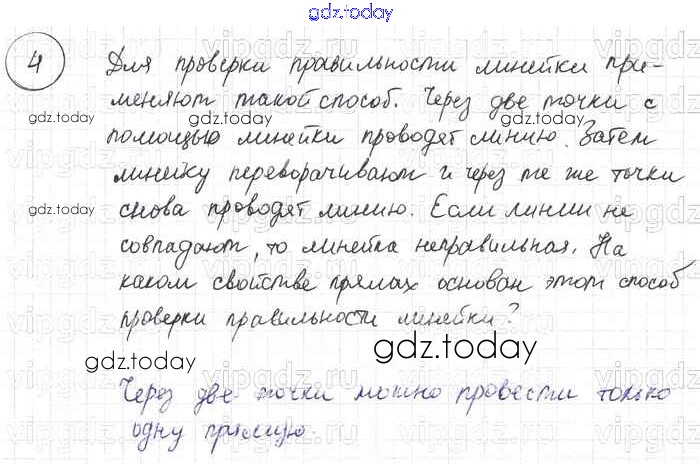 gdz.today
4 Для проверки правильности линейки при-
меняют такой способ. Через две точки с
gdz.today gdz.today gdz.today
помощью линейки проводят линию. Затем
линейку переворачивают и через те же точки
gdz.today
снова проводят линию. Если линии не
совпадают, то линейка неправильная. На
каком свойстве прямых основан этот способ
проверки правильности линейки?
gdz.today gdz.today
Через две точки можно провести только
одну прямую.